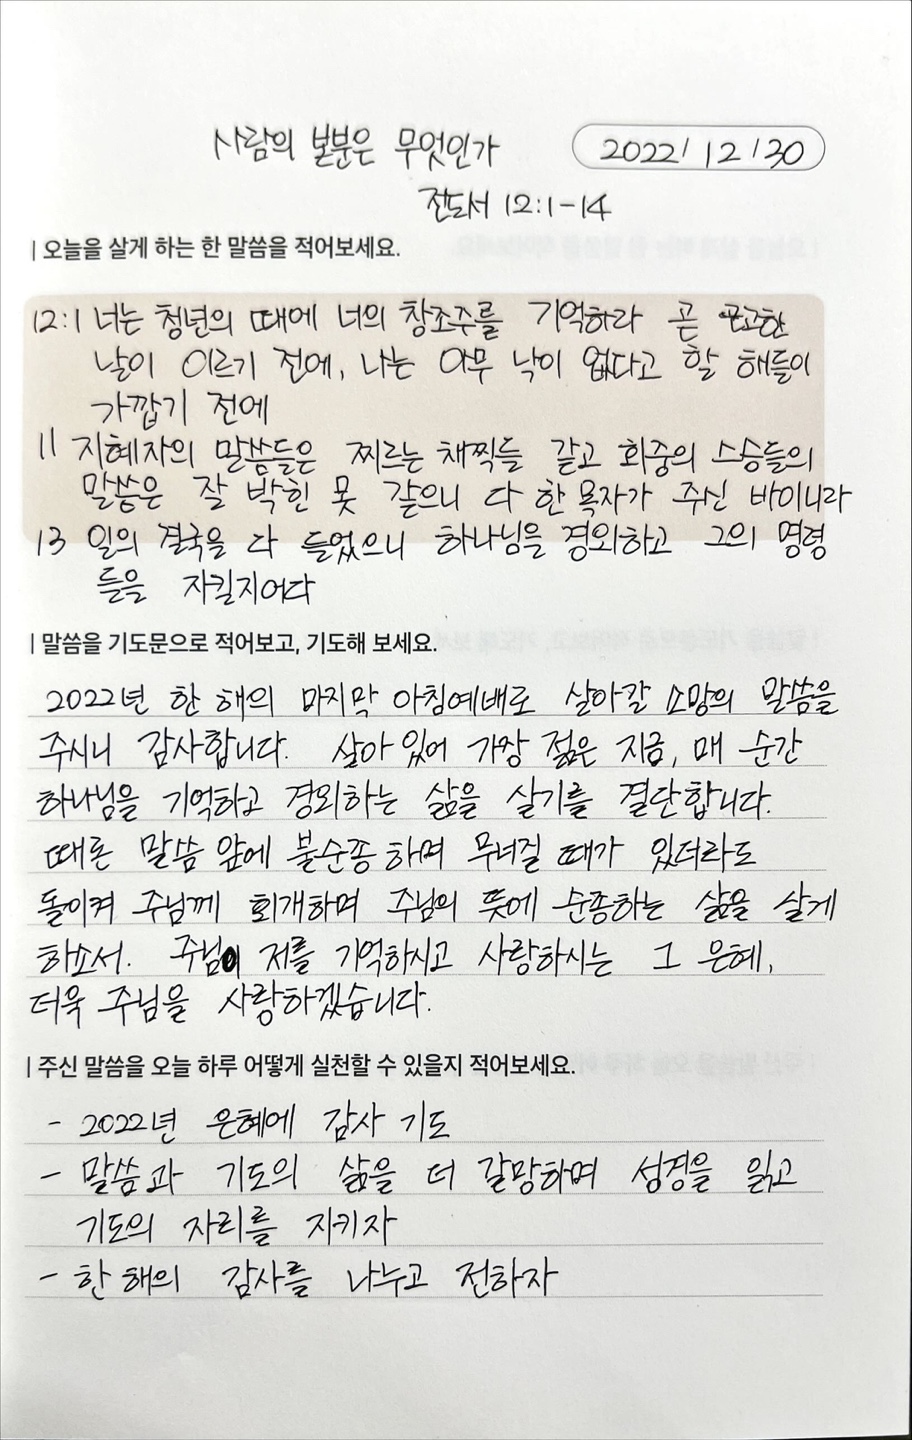 사람의 본분은 무엇인가
2022/12/30
전도서 12:1-14
| 오늘을 살게 하는 한 말씀을 적어보세요.
12:1 너는 청년의 때에 너의 창조주를 기억하라 곧 곤고한
날이 이르기 전에, 나는 아무 낙이 없다고 할 해들이
가깝기 전에
11 지혜자의 말씀들은 찌르는 채찍들 같고 회중의 스승들의
말씀은 잘 박힌 못 같으니 다 한 목자가 주신 바이니라
13 일의 결국을 다 들었으니 하나님을 경외하고 그의 명령
들을 지킬지어다
| 말씀을 기도문으로 적어보고, 기도해 보세요.
2022년 한 해의 마지막 아침예배로 살아갈 소망의 말씀을
주시니 감사합니다. 살아 있어 가장 젊은 지금, 매 순간
하나님을 기억하고 경외하는 삶을 살기를 결단합니다.
때론 말씀 앞에 불순종하며 무너질 때가 있더라도
돌이켜 주님께 회개하며 주님의 뜻에 순종하는 삶을 살게
하소서. 주님이 저를 기억하시고 사랑하시는 그 은혜,
더욱 주님을 사랑하겠습니다.
| 주신 말씀을 오늘 하루 어떻게 실천할 수 있을지 적어보세요.
- 2022년 은혜에 감사 기도
- 말씀과 기도의 삶을 더 갈망하며 성경을 읽고
기도의 자리를 지키자
- 한 해의 감사를 나누고 전하자